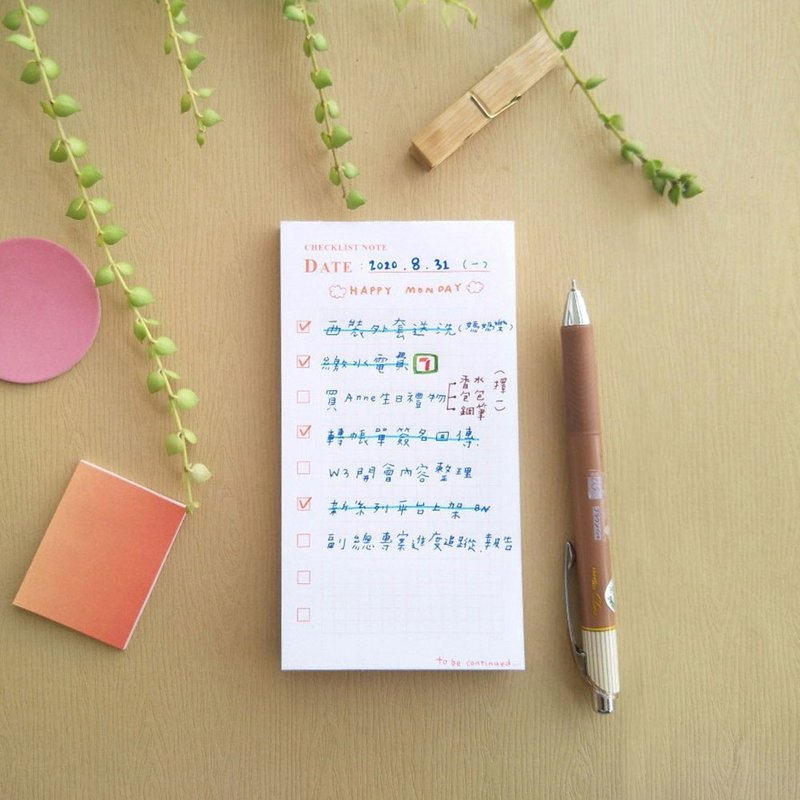 CHECKLIST NOTE
DATE : 2020.8.31 (一)
HAPPY MONDAY
西裝外套送洗(媽媽樂)
繳水電費 7
買Anne生日禮物 香水 包包 鋼筆 (擇一)
轉帳單簽名回傳
W3開會內容整理
新系列平台上架 8N
副總專案進度追蹤.報告
to be continued...